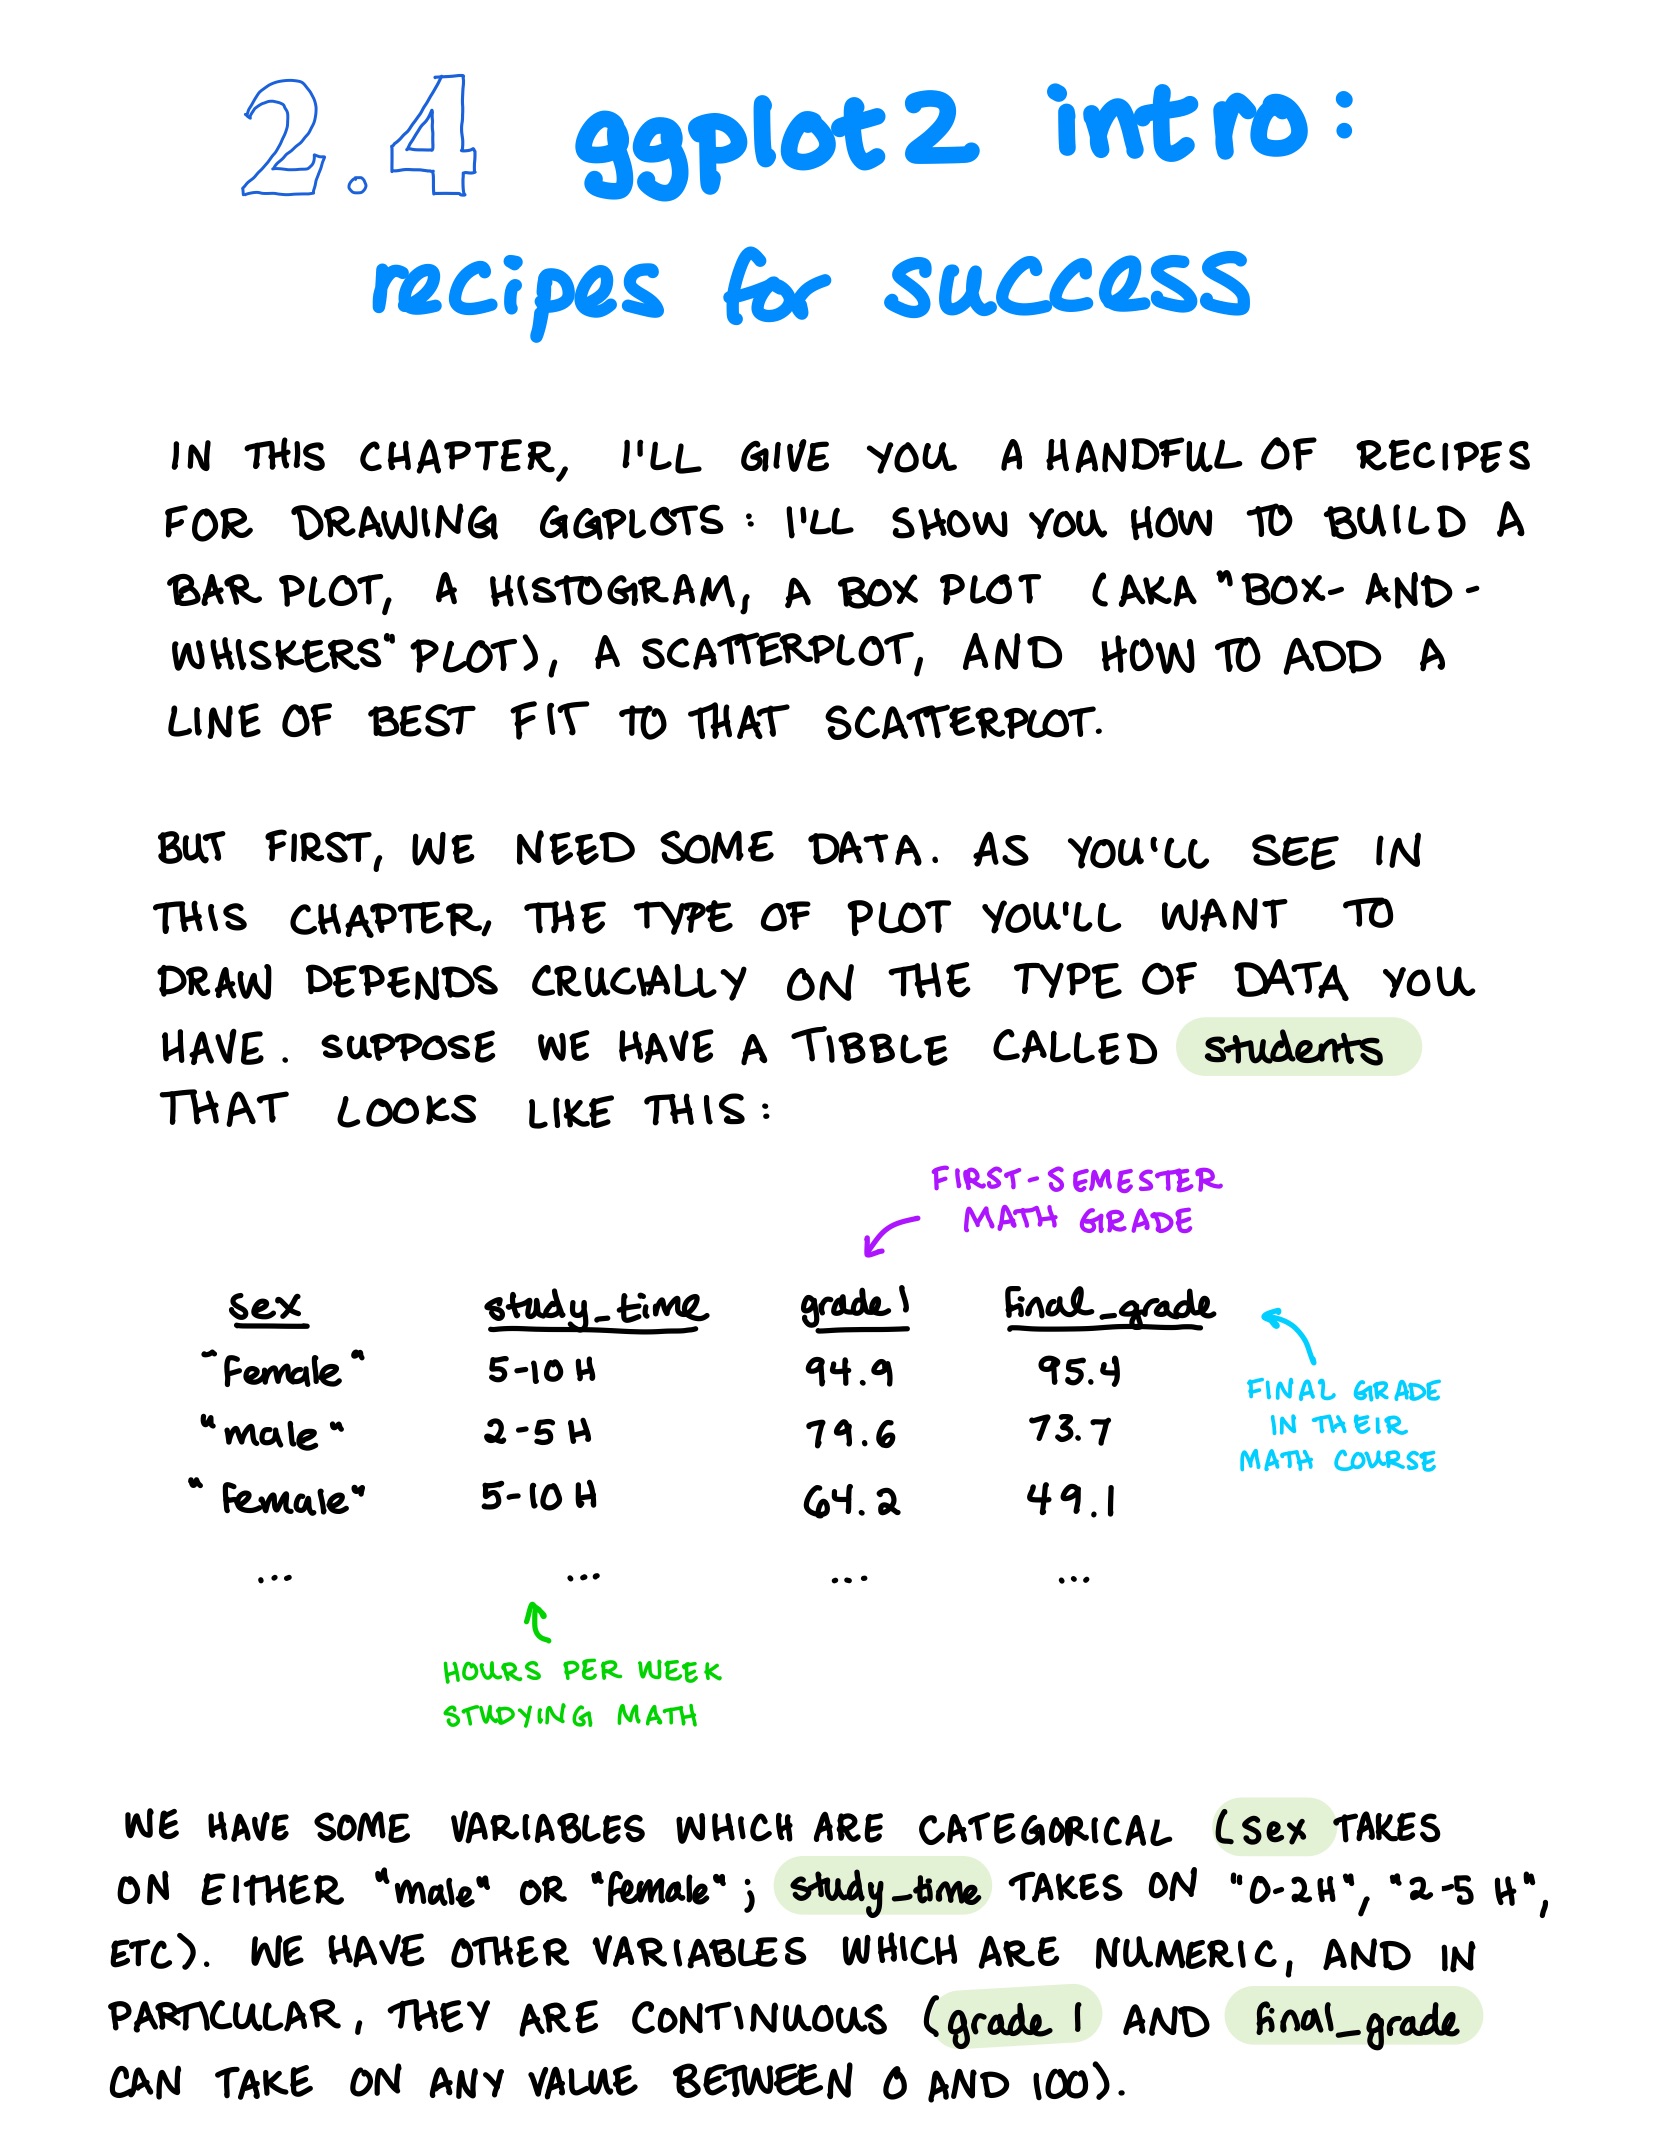 2.4 ggplot2 intro:
recipes for success
IN THIS CHAPTER, I'LL GIVE YOU A HANDFUL OF RECIPES
FOR DRAWING GGPLOTS: I'LL SHOW YOU HOW TO BUILD A
BAR PLOT, A HISTOGRAM, A BOX PLOT (AKA "BOX-AND-
WHISKERS" PLOT), A SCATTERPLOT, AND HOW TO ADD A
LINE OF BEST FIT TO THAT SCATTERPLOT.
BUT FIRST, WE NEED SOME DATA. AS YOU'LL SEE IN
THIS CHAPTER, THE TYPE OF PLOT YOU'LL WANT TO
DRAW DEPENDS CRUCIALLY ON THE TYPE OF DATA YOU
HAVE. SUPPOSE WE HAVE A TIBBLE CALLED students
THAT LOOKS LIKE THIS:
FIRST-SEMESTER
MATH GRADE
sex study_time grade1 final_grade
"female" 5-10 H 94.9 95.4
"male" 2-5 H 79.6 73.7
"female" 5-10 H 64.2 49.1
... ... ... ...
FINAL GRADE
IN THEIR
MATH COURSE
HOURS PER WEEK
STUDYING MATH
WE HAVE SOME VARIABLES WHICH ARE CATEGORICAL (sex TAKES
ON EITHER "male" OR "female"; study_time TAKES ON "0-2H", "2-5 H",
ETC). WE HAVE OTHER VARIABLES WHICH ARE NUMERIC, AND IN
PARTICULAR, THEY ARE CONTINUOUS (grade 1 AND final_grade
CAN TAKE ON ANY VALUE BETWEEN 0 AND 100).